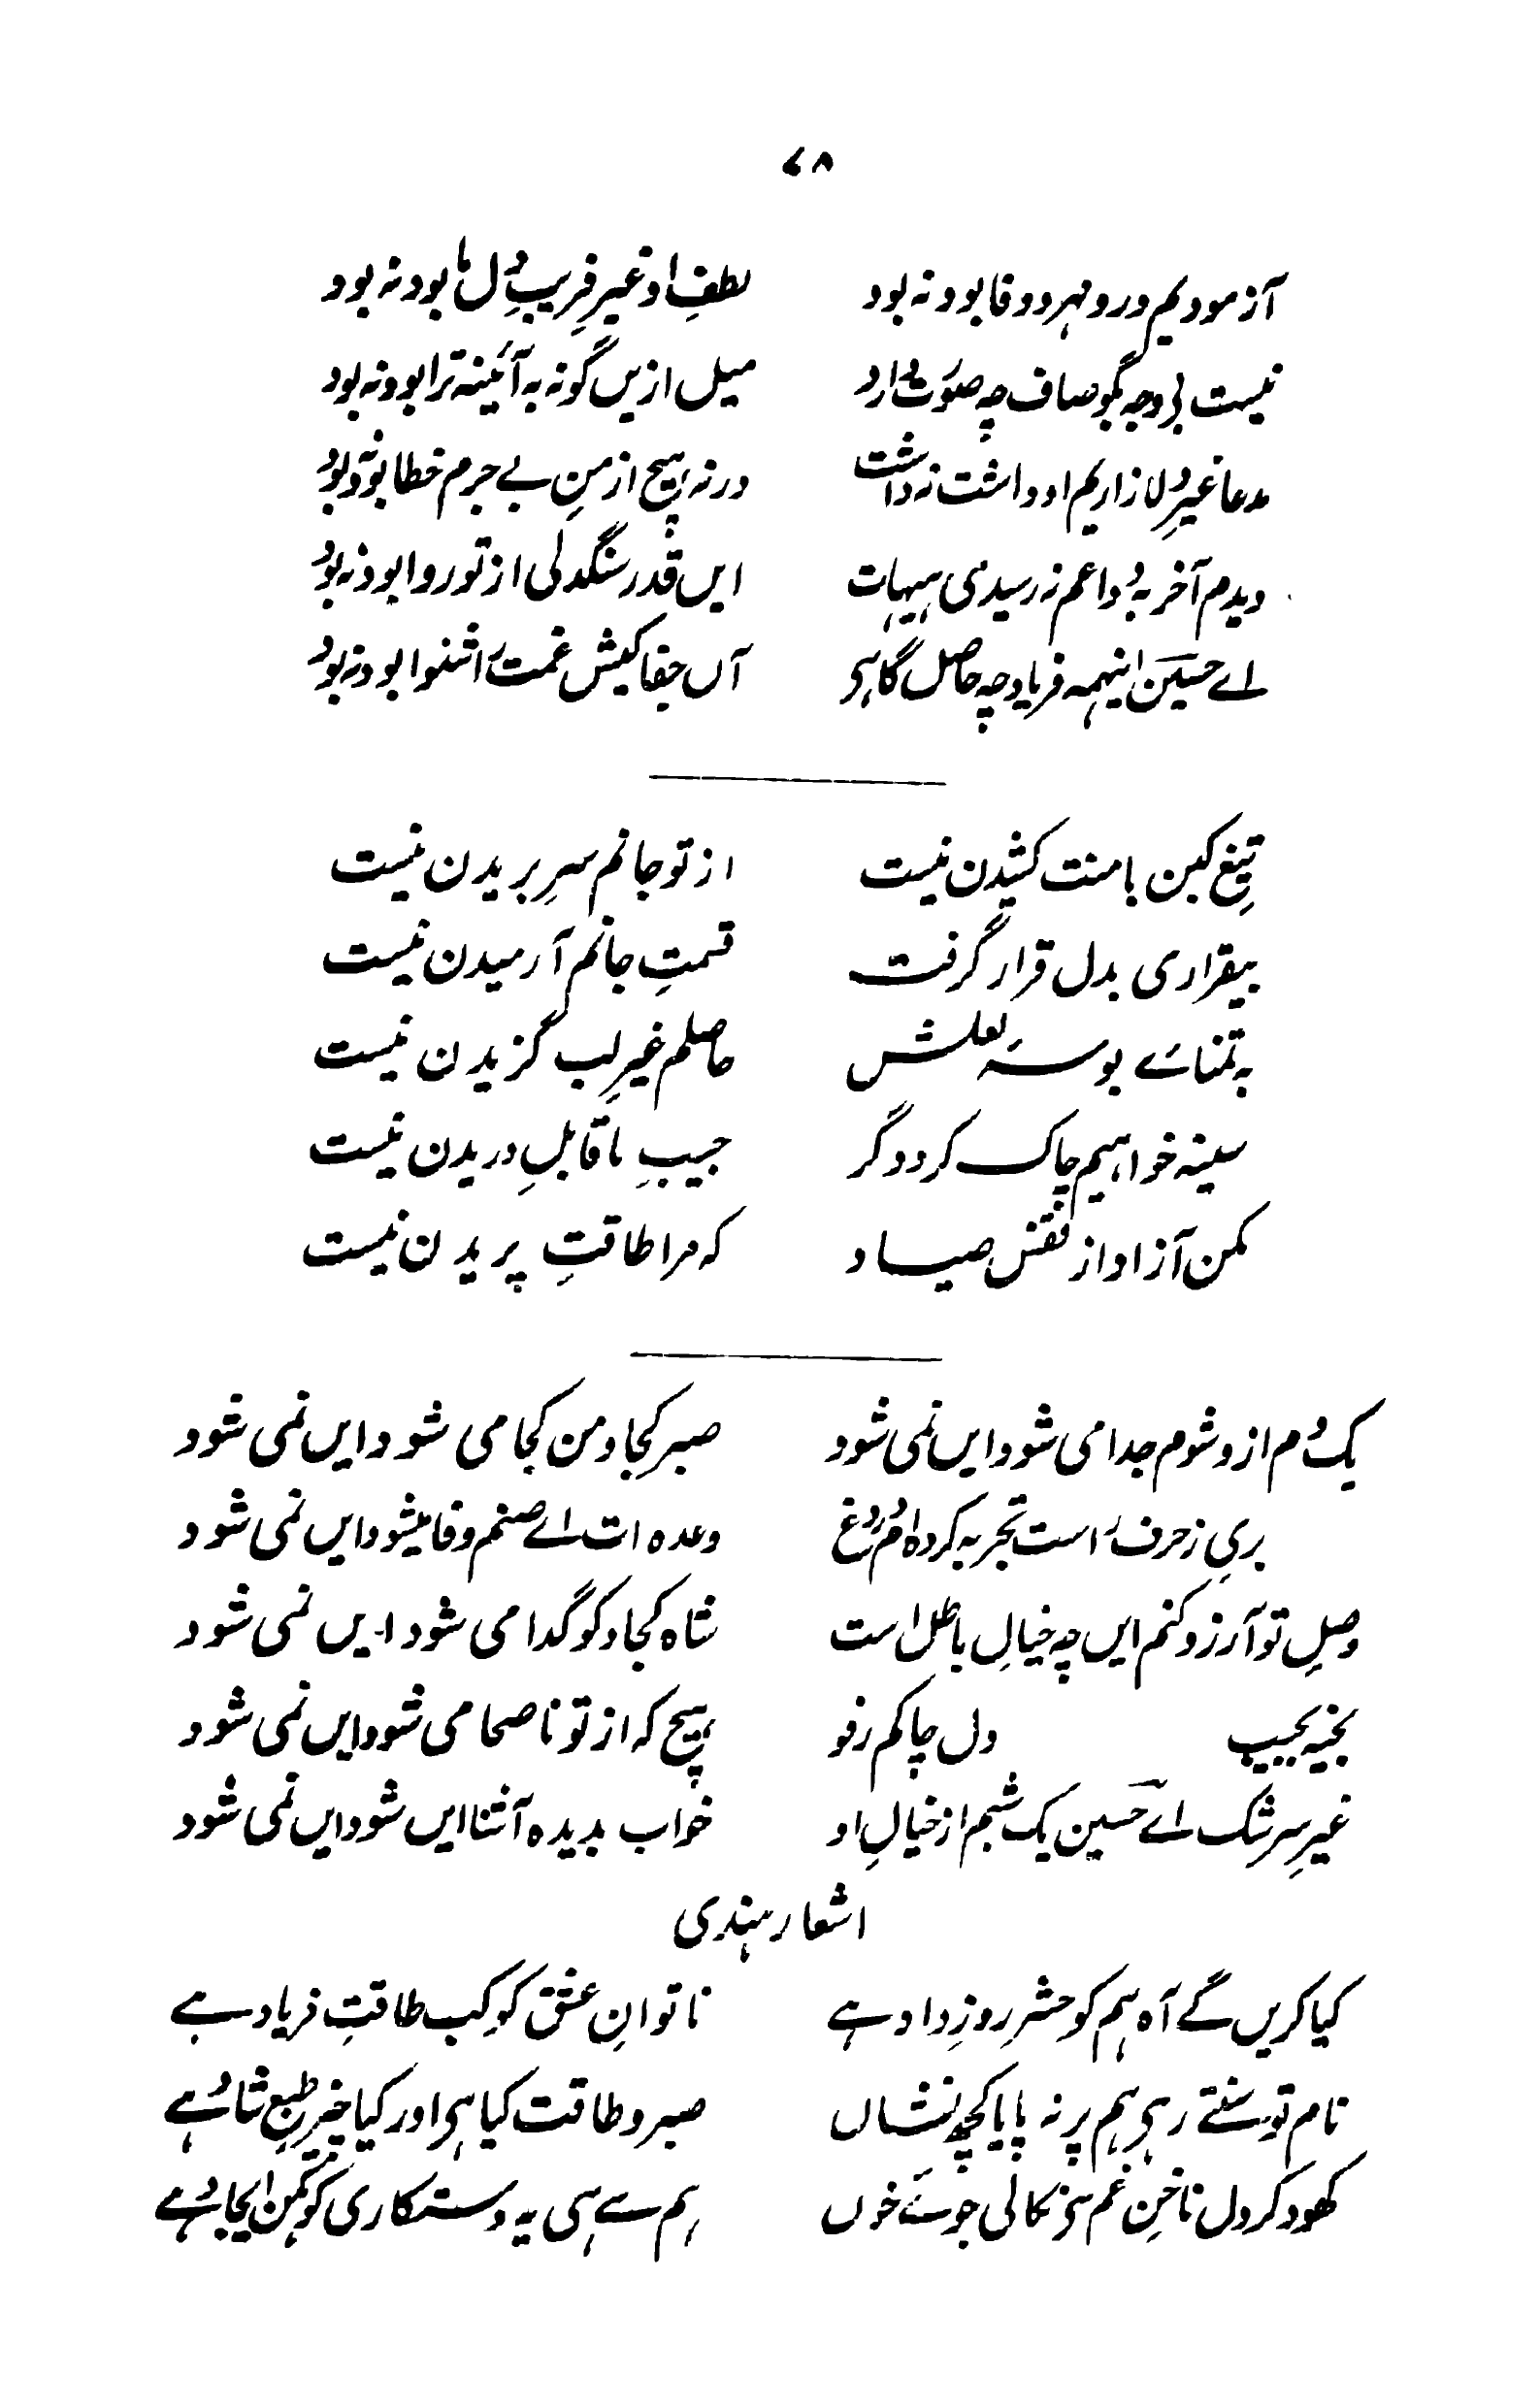 ۷۸
آزمودیم درو مہر و وفا بود نہ بود لطفِ او غیرِ فریبِ دل ما بود نہ بود
نیست بی وجہ بگو صاف چہ صورت دارد میل ازیں گونہ بہ آئینہ ترا بود نہ بود
مدعا غیرِ دلازاریم او داشت نداشت ورنہ ہیچ از منِ بے جرم خطا بود نہ بود
دیدم آخر بہ وداعم نرسیدی ہیہات ایں قدر سنگدلی از تو روا بود نہ بود
اے حسین اینہمہ فریاد چہ حاصل گاہی آں جفا کیش غمت را شنوا بود نہ بود
تیغِ کین با منت کشیدن نیست از تو جانم سرِ بریدن نیست
بیقراری بدل قرار گرفت قسمتِ جانم آرمیدن نیست
بہ تمنائے بوسۂ لعلش حاصلم غیرِ لب گزیدن نیست
سینہ خواہیم چاک کرد دگر جیبِ ما قابلِ دریدن نیست
مکن آزاد از قفس صیاد کہ مرا طاقتِ پریدن نیست
یک دم ازو شوم جدا می شود ایں نمی شود صبر کجا و من کجا می شود ایں نمی شود
بری ز حرف است تجربہ کردہ ام دروغ وعدہ ات اے صنم وفا میشود ایں نمی شود
وصلِ تو آرزو کنم ایں چہ خیالِ باطل است شاہ کجا و کو گدا می شود ایں نمی شود
بخیہ بجیب دل چاکم رفو ہیچ کہ از تو ناصحا می شود ایں نمی شود
غیرِ سرشک اے حسین یک شبم از خیالِ او خواب بدیدہ آشنا ایں شود ایں نمی شود
اشعار ہندی
کیا کریں گے آہ ہم کو حشرِ روزِ داد ہے ناتوانِ عشق کو کب طاقتِ فریاد ہے
نام تو سنتے رہی ہم پر نہ پایا کچھ نشاں صبر و طاقت کیا ہی اور کیا خیرِ طبعِ شاد ہے
کھود کر دل ناخنِ غم نے نکالی جوئے خوں ہم سے ہی یہ دستکاری کوہکن ایجاد ہے